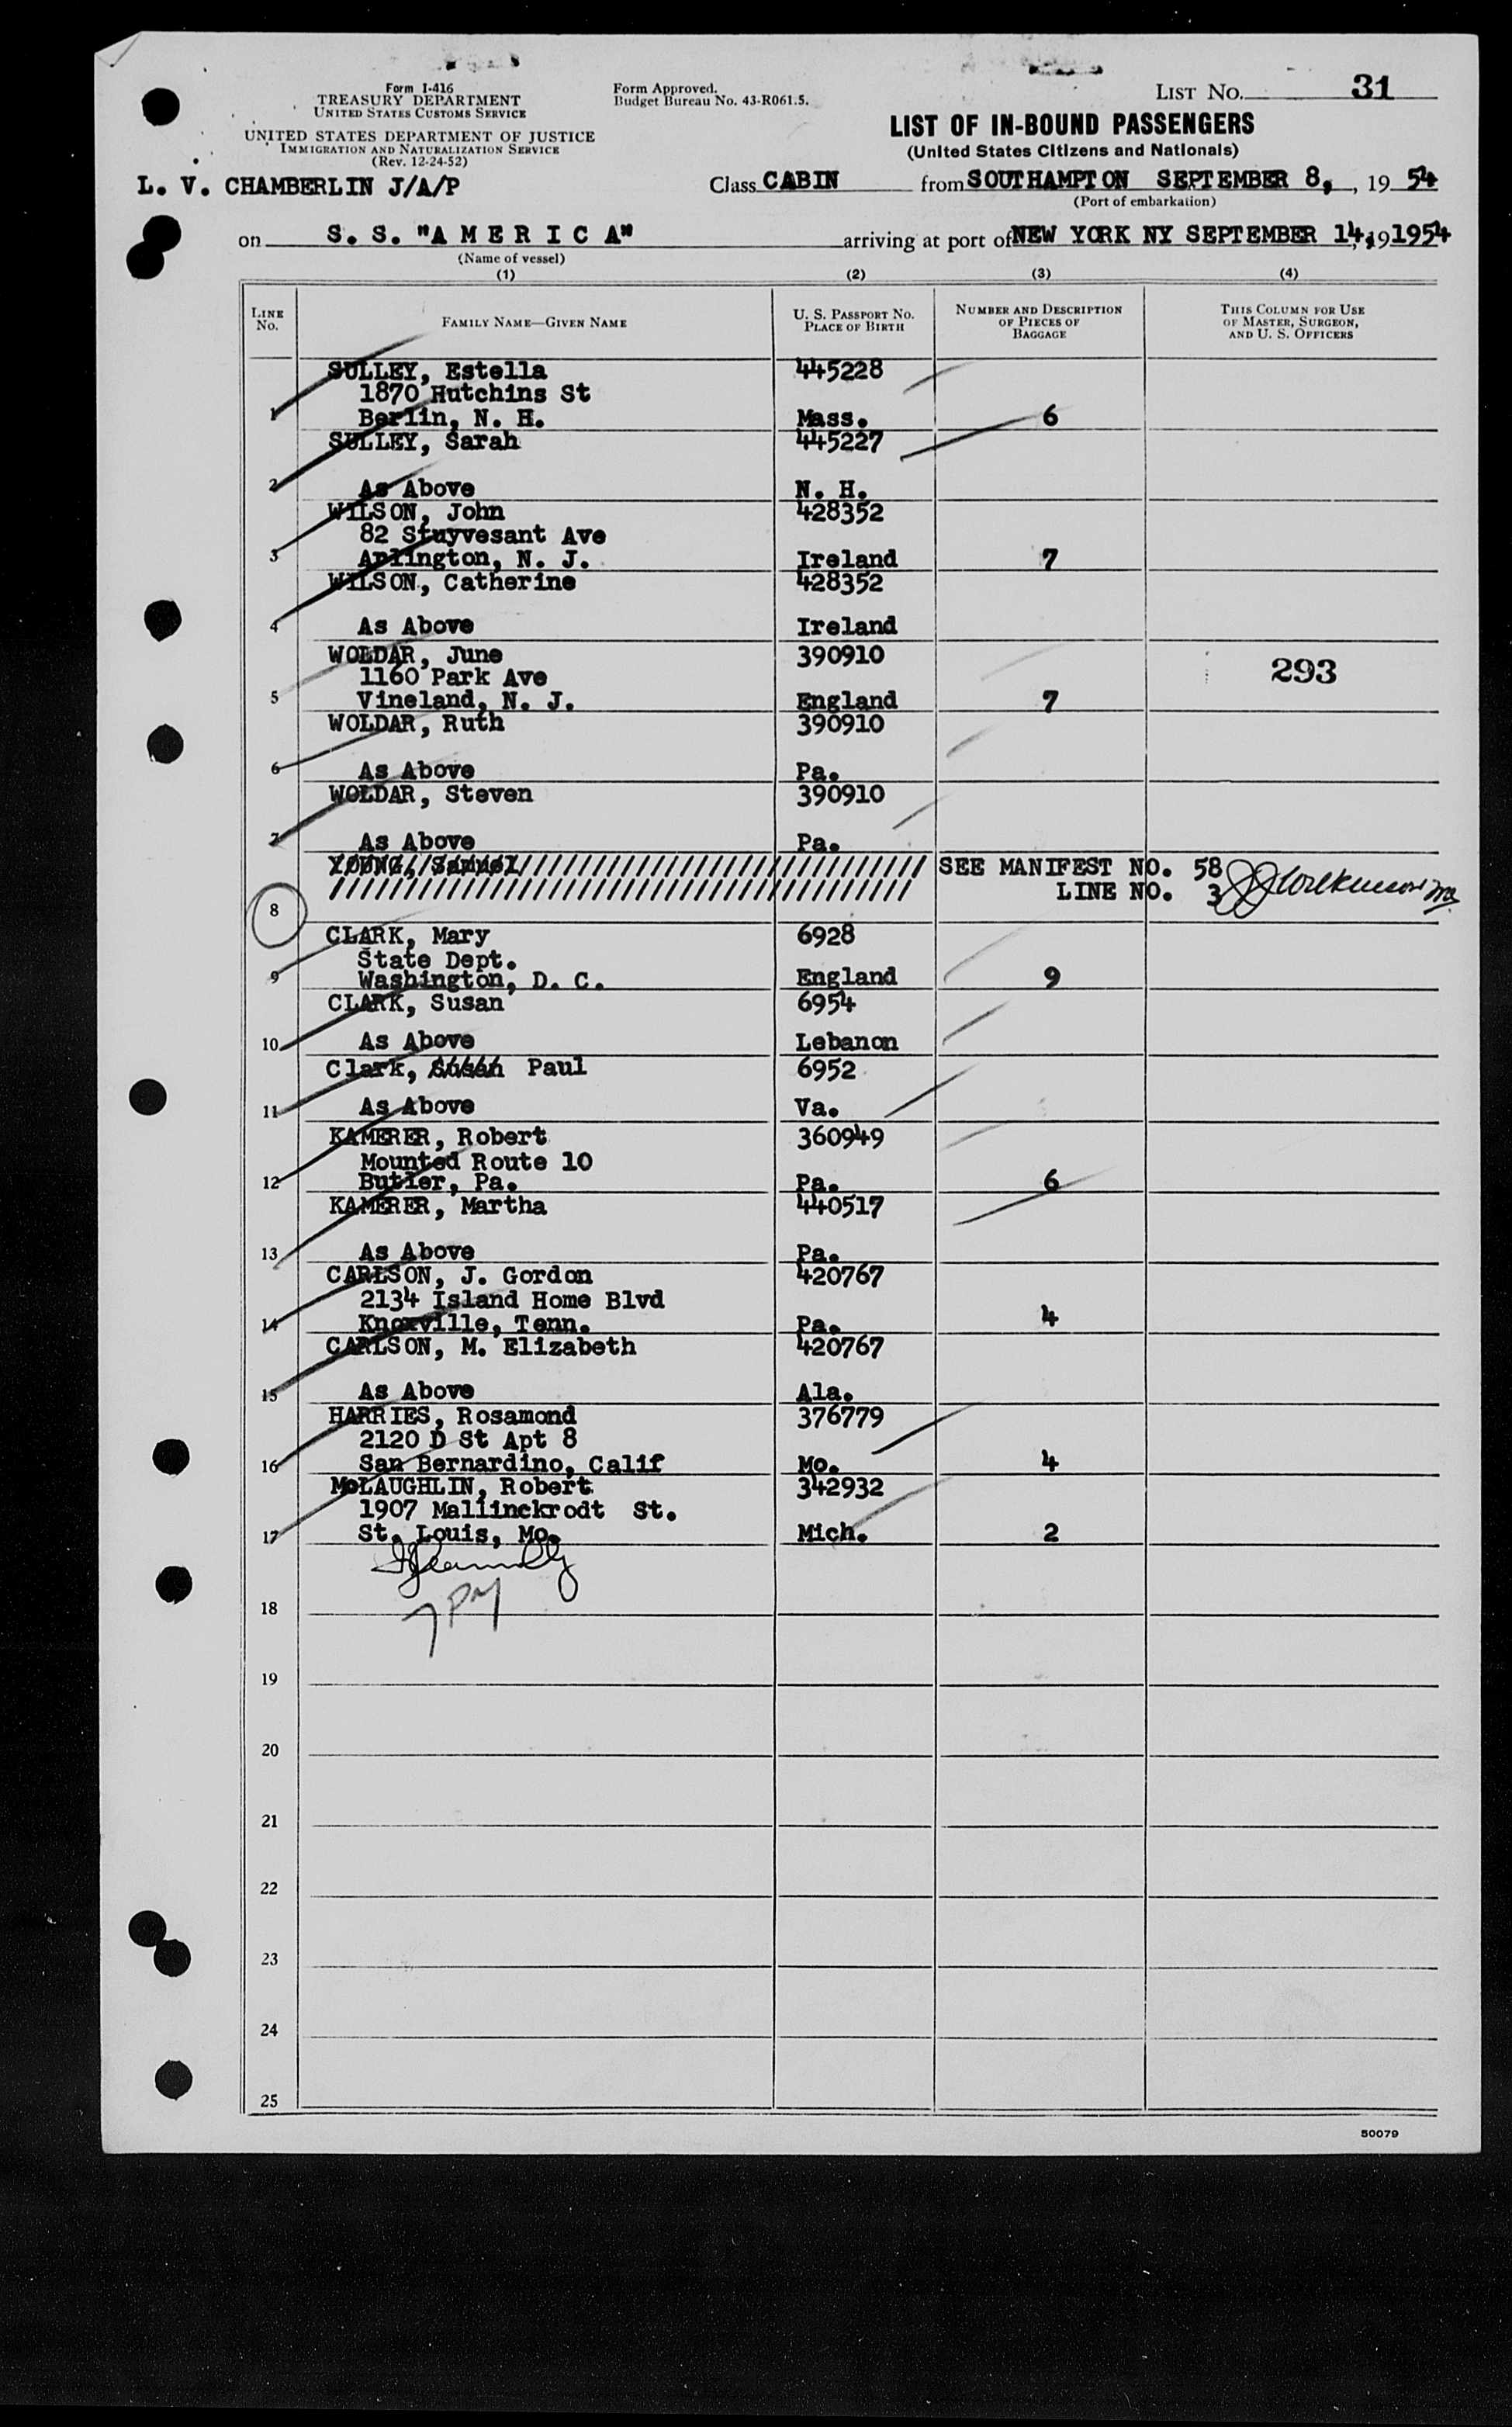 Form I-416
TREASURY DEPARTMENT
UNITED STATES CUSTOMS SERVICE
UNITED STATES DEPARTMENT OF JUSTICE
IMMIGRATION AND NATURALIZATION SERVICE
(Rev. 12-24-52)
Form Approved.
Budget Bureau No. 43-R061.5.
LIST NO. 31
LIST OF IN-BOUND PASSENGERS
(United States Citizens and Nationals)
L. V. CHAMBERLIN J/A/P
Class CABIN from SOUTHAMPTON SEPTEMBER 8, , 19 54
(Port of embarkation)
on S. S. "A M E R I C A" arriving at port of NEW YORK NY SEPTEMBER 14, 19 1954
(Name of vessel)
(1) (2) (3) (4)
LINE NO.
FAMILY NAME—GIVEN NAME
U. S. PASSPORT NO.
PLACE OF BIRTH
NUMBER AND DESCRIPTION OF PIECES OF BAGGAGE
THIS COLUMN FOR USE OF MASTER, SURGEON, AND U. S. OFFICERS
SULLEY, Estella 445228
1870 Hutchins St
1 Berlin, N. H. Mass. 6
SULLEY, Sarah 445227
2 As Above N. H.
WILSON, John 428352
82 Stuyvesant Ave
3 Arlington, N. J. Ireland 7
WILSON, Catherine 428352
4 As Above Ireland
WOLDAR, June 390910
1160 Park Ave 293
5 Vineland, N. J. England 7
WOLDAR, Ruth 390910
6 As Above Pa.
WOLDAR, Steven 390910
7 As Above Pa.
YOUNG, Samuel//////////////////////////// SEE MANIFEST NO. 58
//////////////////////////////////////// LINE NO. 3
8
CLARK, Mary 6928
State Dept.
9 Washington, D. C. England 9
CLARK, Susan 6954
10 As Above Lebanon
Clark, Susan Paul 6952
11 As Above Va.
KAMERER, Robert 360949
Mounted Route 10
12 Butler, Pa. Pa. 6
KAMERER, Martha 440517
13 As Above Pa.
CARLSON, J. Gordon 420767
2134 Island Home Blvd
14 Knoxville, Tenn. Pa. 4
CARLSON, M. Elizabeth 420767
15 As Above Ala.
HARRIES, Rosamond 376779
2120 D St Apt 8
16 San Bernardino, Calif Mo. 4
McLAUGHLIN, Robert 342932
1907 Mallinckrodt St.
17 St. Louis, Mo. Mich. 2
18
19
20
21
22
23
24
25
50079